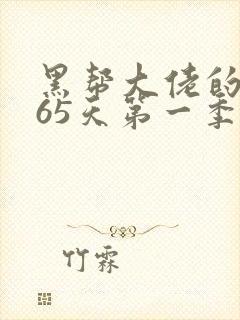 黑帮大佬的
65天第一季
竹霖